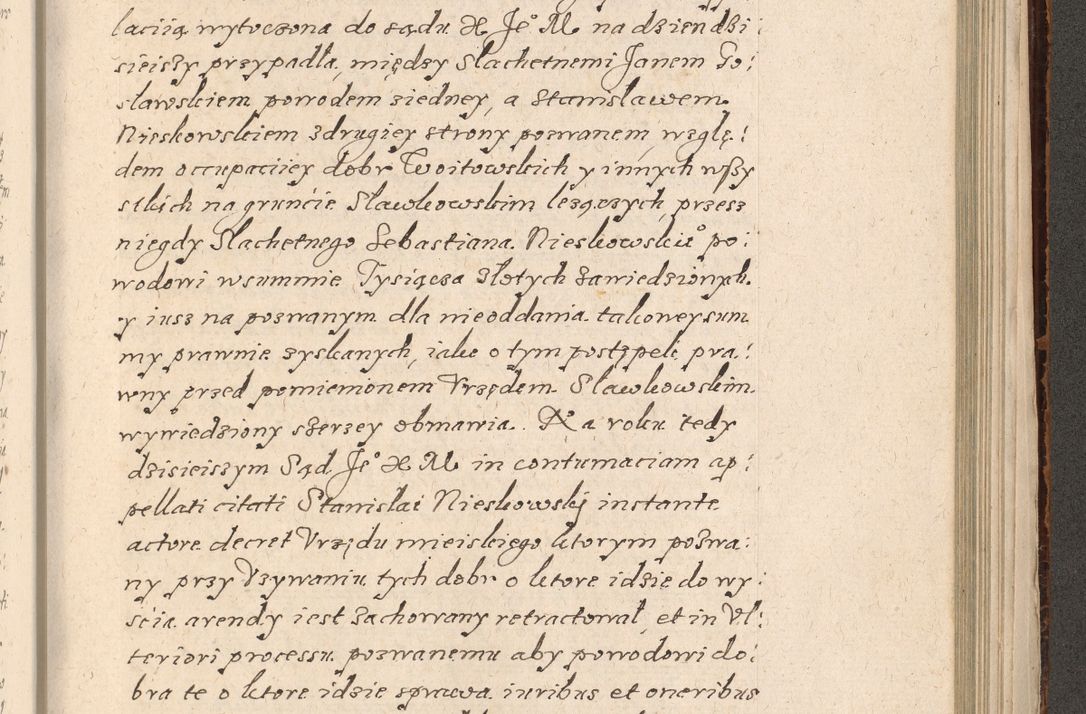 laciią wytoczona do sądu X Je° M na dzien dzi:
sieiszy przypadła, między Slachetnemi Janem Go:
sławskiem powodem ziedney, a Stanisławem
Nieskowskiem zdrugiey strony pozwanem, wzglę:
dem occupaciiey dobr Woitowskich y innych wszy
stkich na gruncie Sławkowskim leżączych, przesz
niegdy Slachetnego Sebastiana Nieskowskie° po:
wodowi wsummie Tysiącza złotych zawiedzionych.
y iusz na pozwanym dla nieoddania takowey sum
my prawnie zyskanych, iako o tym postępek pra:
wny przed pomienionem Vrzędem Sławkowskim
wywiedziony szerzey obmawia. Na roku tedy
dzisieiszym Sąd Je° X M in contumaciam ap:
pellati citati Stanislai Nieskowskj instante
actore decret Vrzędu mieiskięgo ktorym pozwa:
ny przy Vzywaniu tych dobr o ktore idzie do wy:
scia arendy iest zachowany retractował, et in Vl:
teriori processu pozwanemu aby powodowi do:
bra te o ktore idzie sprawa iuribus et oneribus